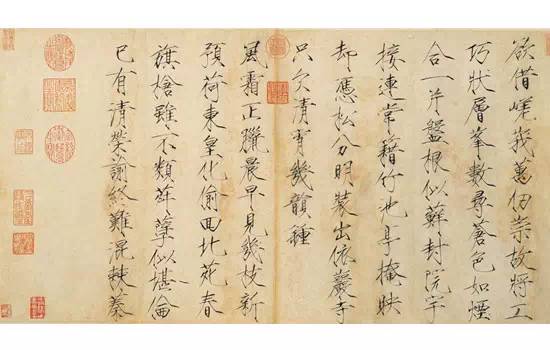 欲借嵯峨萬仞崇故將工
巧狀層峯數尋蒼色如煙
合一片盤根似蘚封院宇
接連常藉竹池亭掩映
却憑松分明裝出依巖寺
只欠清宵幾韻鍾
風霜正臘晨早見幾枝新
預荷東皇化偷回北苑春
旗槍雖不類荈蘖似堪倫
已有清榮諭終難混棘蓁